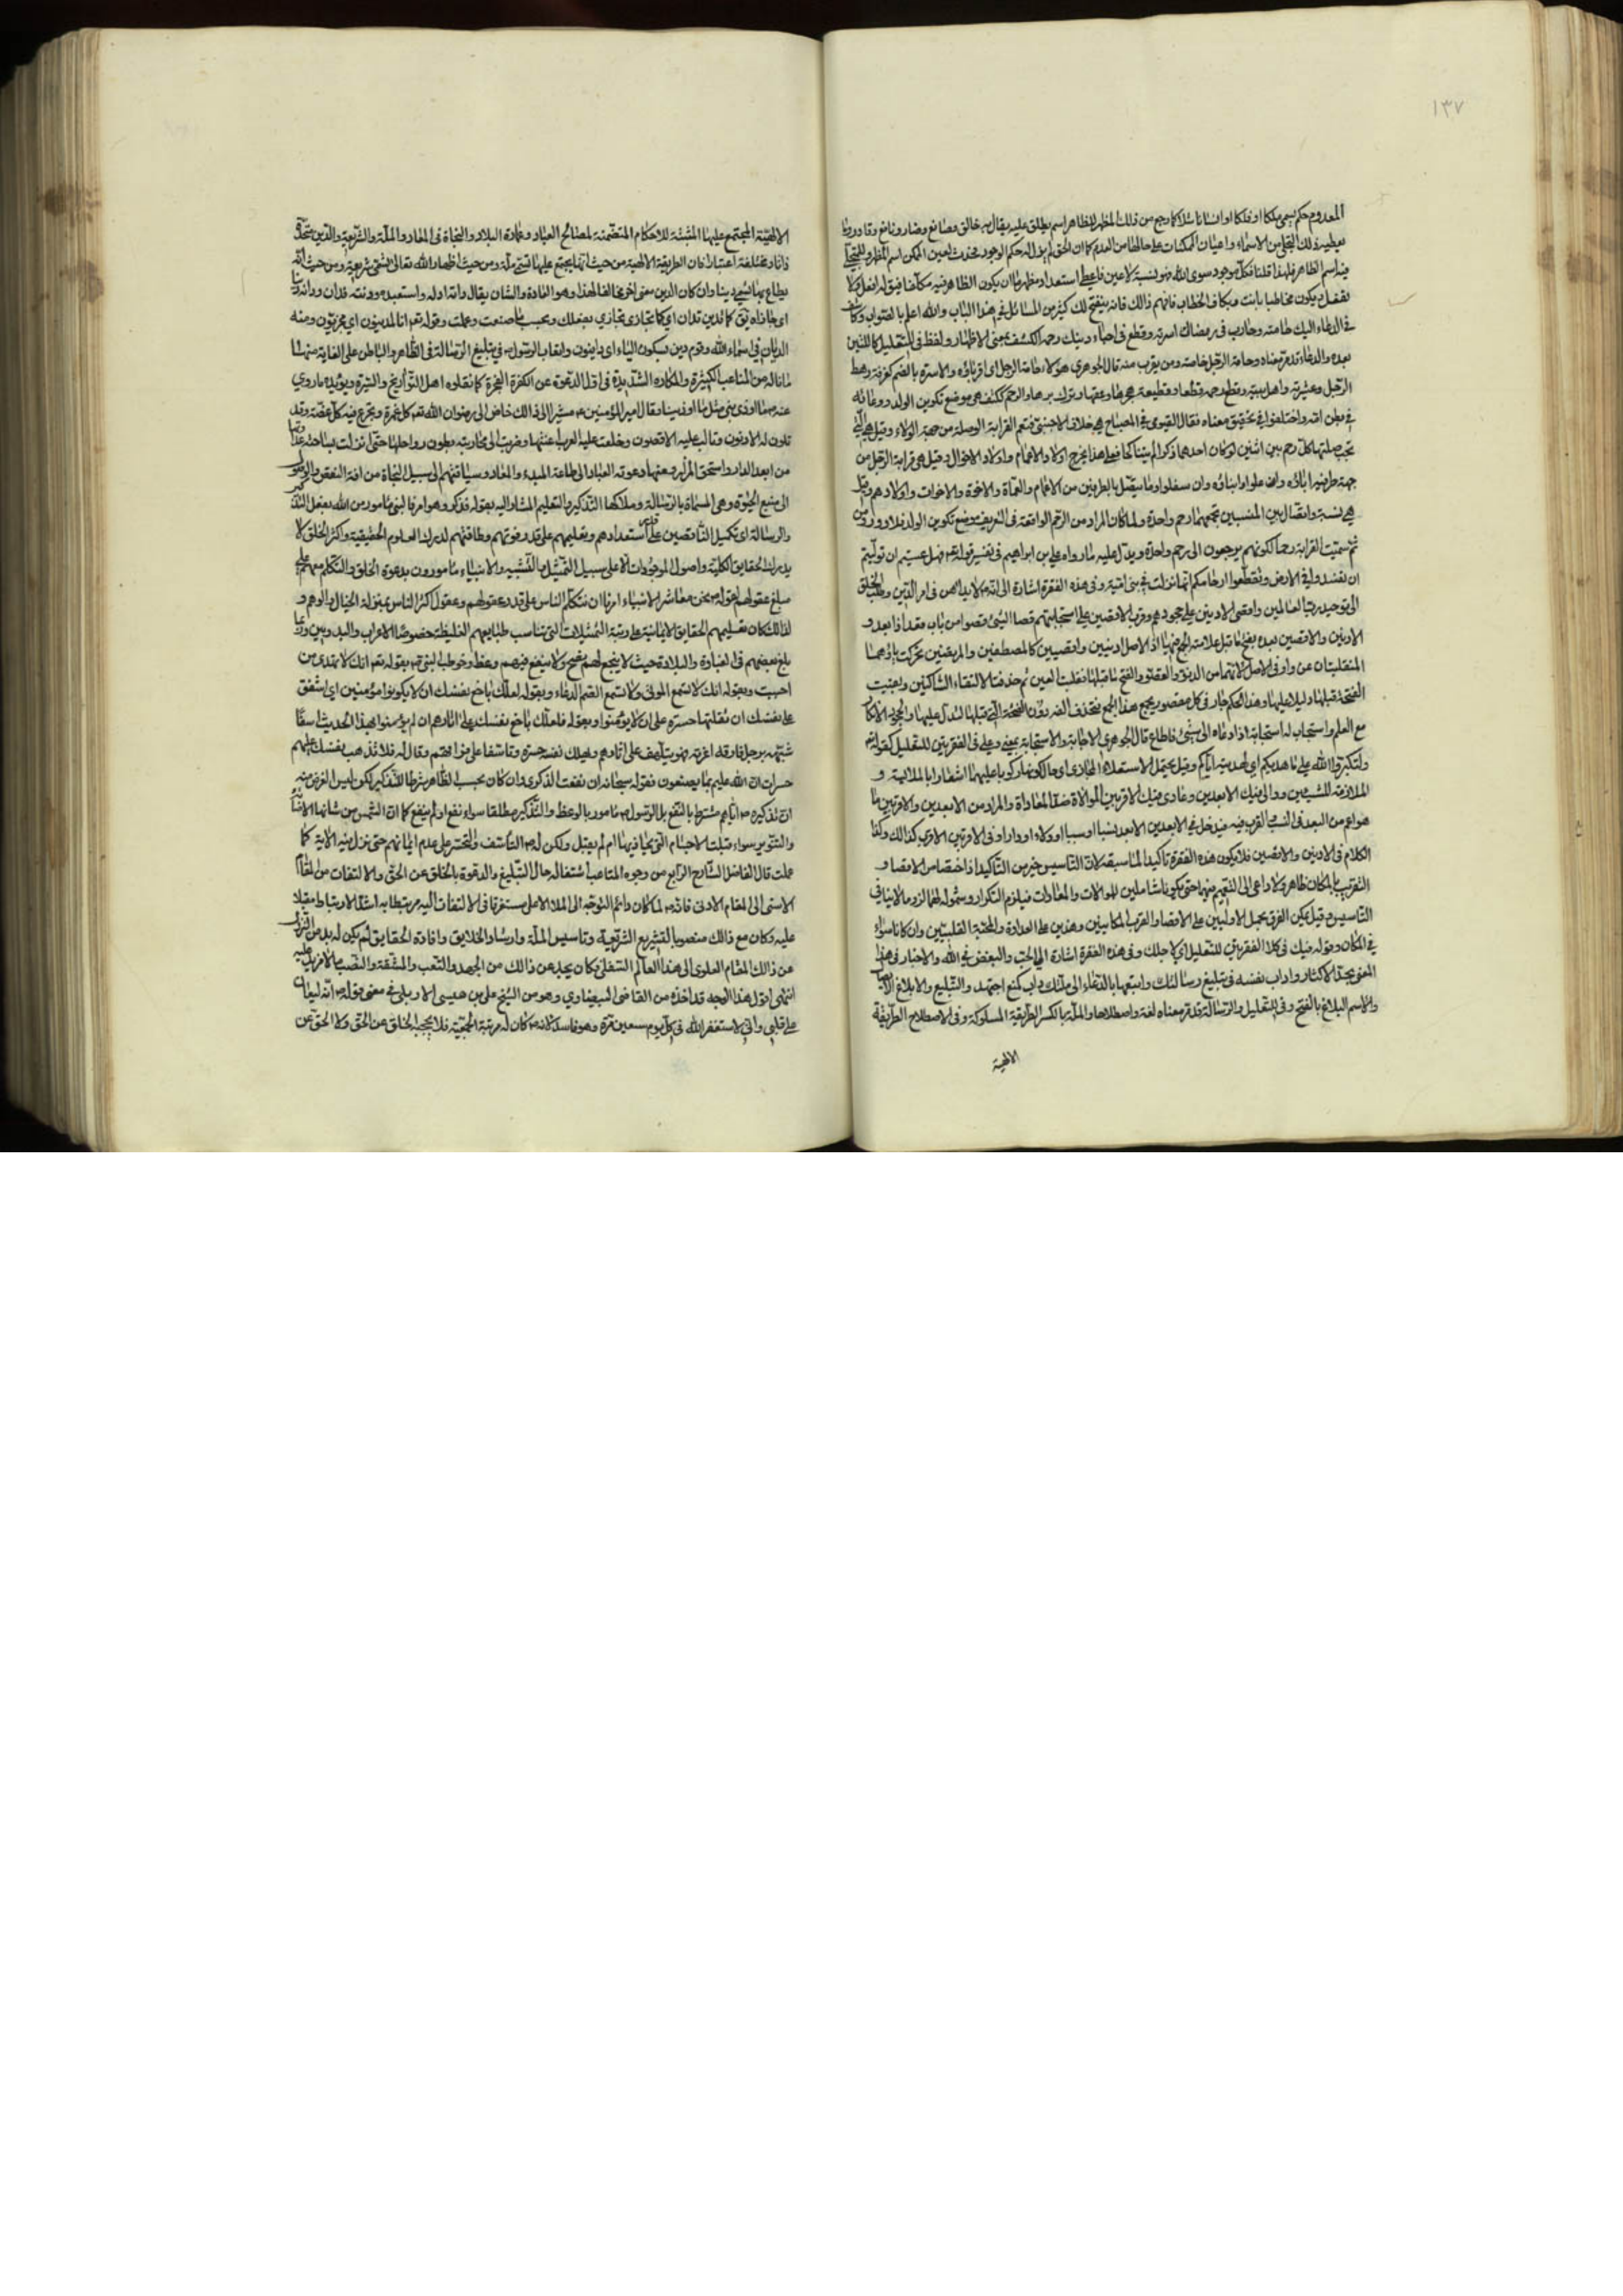 ١٣٧
المعدوم حكم يسمى ملكا او فلكا او انسانا مثلا كما رجع من ذلك المظهر للظاهر اسم يطلق عليه يقال به خالق وصانع وضار ونافع وقادر وما
يعطيه ذلك التجلي من الاسماء واعيان الممكنات على حالها من العدم كما ان الحق لم يزل له حكم الوجود فحدث لعين الممكن اسم المظهر وللمتجلي
فيه اسم الظاهر فلهذا قلنا فكل موجود سوى الله فهو نسبة لا عين فاعطى استعداد مظهر ما ان يكون الظاهر فيه مكلفا فيقول له افعل ولا
تفعل ويكون مخاطبا بانت وبكاف الخطاب فافهم ذلك فانه ينفتح لك كثير من المسائل في هذا الباب والله اعلم بالصواب وكاشف
في الدعاء اليك حامته وحارب في رضاك اسرته وقطع في احياء دينك رحمه الكشف بمعنى الاظهار ولفظ في للتعليل كاللتين
بعده والدعاء قد مر معناه وحامة الرجل خاصته ومن يقرب منه قال الجوهري هؤلاء حامة الرجل اي اقرباؤه والاسرة بالضم كغرفة رهط
الرجل وعشيرته واهل بيته وقطع رحمه قطعا وقطيعة هجرها وعقها وترك برها والرحم ككتف هي موضع تكوين الولد ووعائه
في بطن امه واختلفوا في تحقيق معناه فقال الفيومي في المصباح هي خلاف الاجنبي فتعم القرابة الوصلة من جهة الولاء وقيل هي التي
تجب صلتها كل رحم بين اثنين لو كان احدهما ذكرا لم يتناكحا فعلى هذا يخرج اولاد الاعمام واولاد الاخوال وقيل هي قرابة الرجل من
جهة طرفيه اباؤه وان علوا وابناؤه وان سفلوا وما يتصل بالطرفين من الاعمام والعمات والاخوة والاخوات واولادهم وقيل
هي نسبة واتصال بين المنتسبين تجمعهما رحم واحدة ولما كان المراد من الرحم الواقعة في التعريف موضع تكوين الولد فلا دور ومن
ثم سميت القرابة رحما لكونهم يرجعون الى رحم واحدة ويدل عليه ما رواه علي بن ابراهيم في تفسير قوله تعم فهل عسيتم ان توليتم
ان تفسدوا في الارض وتقطعوا ارحامكم انها نزلت في بني امية وفي هذه الفقرة اشارة الى انه لا يداهن في امر الدين وطلب الخلق
الى توحيد رب العالمين واقصى الادنين على جحودهم وقرب الاقصين على استجابتهم قصا الشيء قصوا من باب قعد اذا بعد و
الادنين والاقصين بعده بفتح ما قبل علامة الجمع فيهما اذ الاصل ادنيين واقصيين كالمصطفين والمرتضين تحركت ياؤهما
المنقلبتان عن واو في الاصل لانهما من الدنو والقصو وانفتح ما قبلها فقلبت الفين ثم حذفت لالتقاء الساكنين وبقيت
الفتحة قبلها دليلا عليها وهذا الحكم جار في كل مقصور يجمع هذا الجمع فتحذف الفه دون الفتحة التي قبلها لتدل عليها والجحود الانكار
مع العلم واستجاب له استجابة اذا دعاه الى شيء فاطاع قال الجوهري الاجابة والاستجابة بمعنى وعلى في الفقرتين للتعليل كقوله تعم
ولتكبروا الله على ما هديكم اي لهدايته اياكم وقيل يحتمل الاستعلاء المجازي اي حالكونهم راكوبا عليهما اشعارا بالملابسة و
الملازمة للشيئين ووالى فيك الابعدين وعادى فيك الاقربين الموالاة ضد المعاداة والمراد من الابعدين والاقربين ما
هو اعم من البعد في النسب والقرب فيه فيدخل في الابعدين الابعد نسبا او سببا او ولاء او دارا وفي الاقربين الاقرب كذلك وكذا
الكلام في الادنين والاقصين فلا يكون هذه الفقرة تاكيدا لما سبقه لان التاسيس خير من التاكيد اذ اختصاص الاقصاء و
التقريب بالمكان ظاهر ولا داعي الى التعميم فيهما حتى يكونا شاملين للموالات والمعادات فيلزم التكرار وشموله لهما لزوما لا ينافي
التاسيس وقيل يمكن الفرق بحمل الاوليين على الاقصاء والقرب المكانيين وهذين على العداوة والمحبة القلبيتين وان كانا سواء
في المكان وقوله فيك في كلا الفقرتين للتعليل اي لاجلك وفي هذه الفقرة اشارة الى الحب والبغض في الله والاخبار في هذا
المعنى بحد الاكثار واداب نفسه في تبليغ رسالتك واتعبها بالدعاء الى ملتك داب كمنع اجتهد والتبليغ والابلاغ الايصال
والاسم البلاغ بالفتح وفي للتعليل والرسالة قد مر معناه لغة واصطلاحا والملة بالكسر الطريقة المسلوكة وفي الاصطلاح الطريقة
الالهية
الالهية المجتمع عليها المثبتة للاحكام المتضمنة لمصالح العباد وعمارة البلاد والنجاة في المعاد والملة والشريعة والدين متحدة
ذاتا ومختلفة اعتبارا فان الطريقة الالهية من حيث انها يجتمع عليها تسمى ملة ومن حيث اظهار الله تعالى تسمى شريعة ومن حيث انه
يطاع بها تسمى دينا وان كان الدين معنى اخر مخالفا لهذا وهو العادة والشان يقال دانه اذله واستعبده ودنته فدان ودانه دينا
اي جازاه يق كما تدين تدان اي كما تجازي تجازى بفعلك وبحسب ما صنعت وعملت وقوله تعم انا لمدينون اي مجزيون ومنه
الديان في اسماء الله وقوم دين بسكون الياء اي داينون واتعاب الرسول في تبليغ الرسالة في الظاهر والباطن على الغاية منهما
ما ناله من المتاعب الكثيرة والمكاره الشديدة في اول الدعوة عن الكفرة الفجرة كما نقلوه اهل التواريخ والسيرة ويؤيده ما روي
عنه ص ما اوذي نبي مثل ما اوذيت وقال امير المؤمنين ع مشيرا الى ذالك خاض الى رضوان الله تعم كل غمرة وتجرع فيه كل غصة وقد
تلون له الادنون وتالب عليه الاقصون وخلعت عليه العرب اعنتها وضربت الى محاربته بطون رواحلها حتى انزلت بساحته عداوتها
من ابعد الدار واسحق المزار ومعنها دعوته العباد الى طاعة المبدء والمعاد وسياقتهم الى سبيل النجاة من افة النقص والوصول
الى منبع الحيوة وهي المسماة بالرسالة وملاكها التذكير والتعليم المشار اليه بقوله فذكر وهو امر فالنبي مامور من الله بفعل التذكير
والرسالة اي تكميل الناقصين على قدر استعدادهم وتعليمهم على قدر قوتهم وطاقتهم لدرك العلوم الحقيقية واكثر الخلق لا
يدرك الحقايق الكلية واصول الموجودات الا على سبيل التمثيل والتشبيه والانبياء مامورون بدعوة الخلق والتكلم معهم على
مبلغ عقولهم لقوله ص نحن معاشر الانبياء امرنا ان نتكلم الناس على قدر عقولهم وعقول اكثر الناس بمنزلة الخيال والوهم و
لذالك كان تعليمهم الحقايق الايمانية على رتبة التمثيلات التي تناسب طبايعهم الغليظة خصوصا الاعراب والبدويين وربما
بلغ بعضهم في الغباوة والبلادة حيث لا ينجع لهم نصح ولا ينفع فيهم وعظ وخوطب النبي ص بقوله تعم انك لا تهتدي من
احببت وبقوله انك لا تسمع الموتى ولا تسمع الصم الدعاء وبقوله لعلك باخع نفسك ان لا يكونوا مؤمنين اي اشفق
على نفسك ان تقتلها حسرة على ان لا يؤمنوا وبقوله فلعلك باخع نفسك على اثارهم ان لم يؤمنوا بهذا الحديث اسفا
شبهه برجل فارقه اعزته فهو يتلهف على اثارهم ويهلك نفسه حسرة وتاسفا على فراقهم وقال له فلا تذهب نفسك عليهم
حسرات ان الله عليم بما يصنعون فقوله سبحانه ان نفعت الذكرى وان كان بحسب الظاهر شرطا للتذكير لكن ليس الغرض منه
ان تذكيره ص اياهم مشترط بالنفع بل الرسول ص مامور بالوعظ والتذكير مطلقا سواء نفع او لم ينفع كما ان الشمس من شانها الاضاءة
والتنوير سواء قبلت الاجسام التي يحاذيها ام لم يقبل ولكن له ص التاسف والتحسر على عدم ايمانهم حتى نزل فيه الاية كما
علمت قال الفاضل الشارح الرابع من وجوه المتاعب اشتغاله حال التبليغ والدعوة بالخلق عن الحق والالتفات من لقاء
الاسنى الى المقام الادنى فانه ص لما كان دائم التوجه الى الملاء الاعلى مستغرقا في الالتفات اليه مرتبطا به اشد الارتباط مقبلا
عليه وكان مع ذالك منصوبا لتشريع الشريعة وتاسيس الملة وارشاد الخلايق وافادة الحقايق لم يكن له بد من التنزل
عن ذالك المقام العلوي الى هذا العالم السفلي وكان يجد عن ذالك من الجهد والتعب والمشقة والنصب ما لا مزيد عليه
انتهى اقول هذا الوجه قد اخذه من القاضي البيضاوي وهو من الشيخ علي بن عيسى الاربلي في معنى قوله ص انه ليغان
على قلبي واني لاستغفر الله في كل يوم سبعين مرة وهو فاسد لانه ص كان له مرتبة الجمعية فلا يحجبه الخلق عن الحق ولا الحق عن